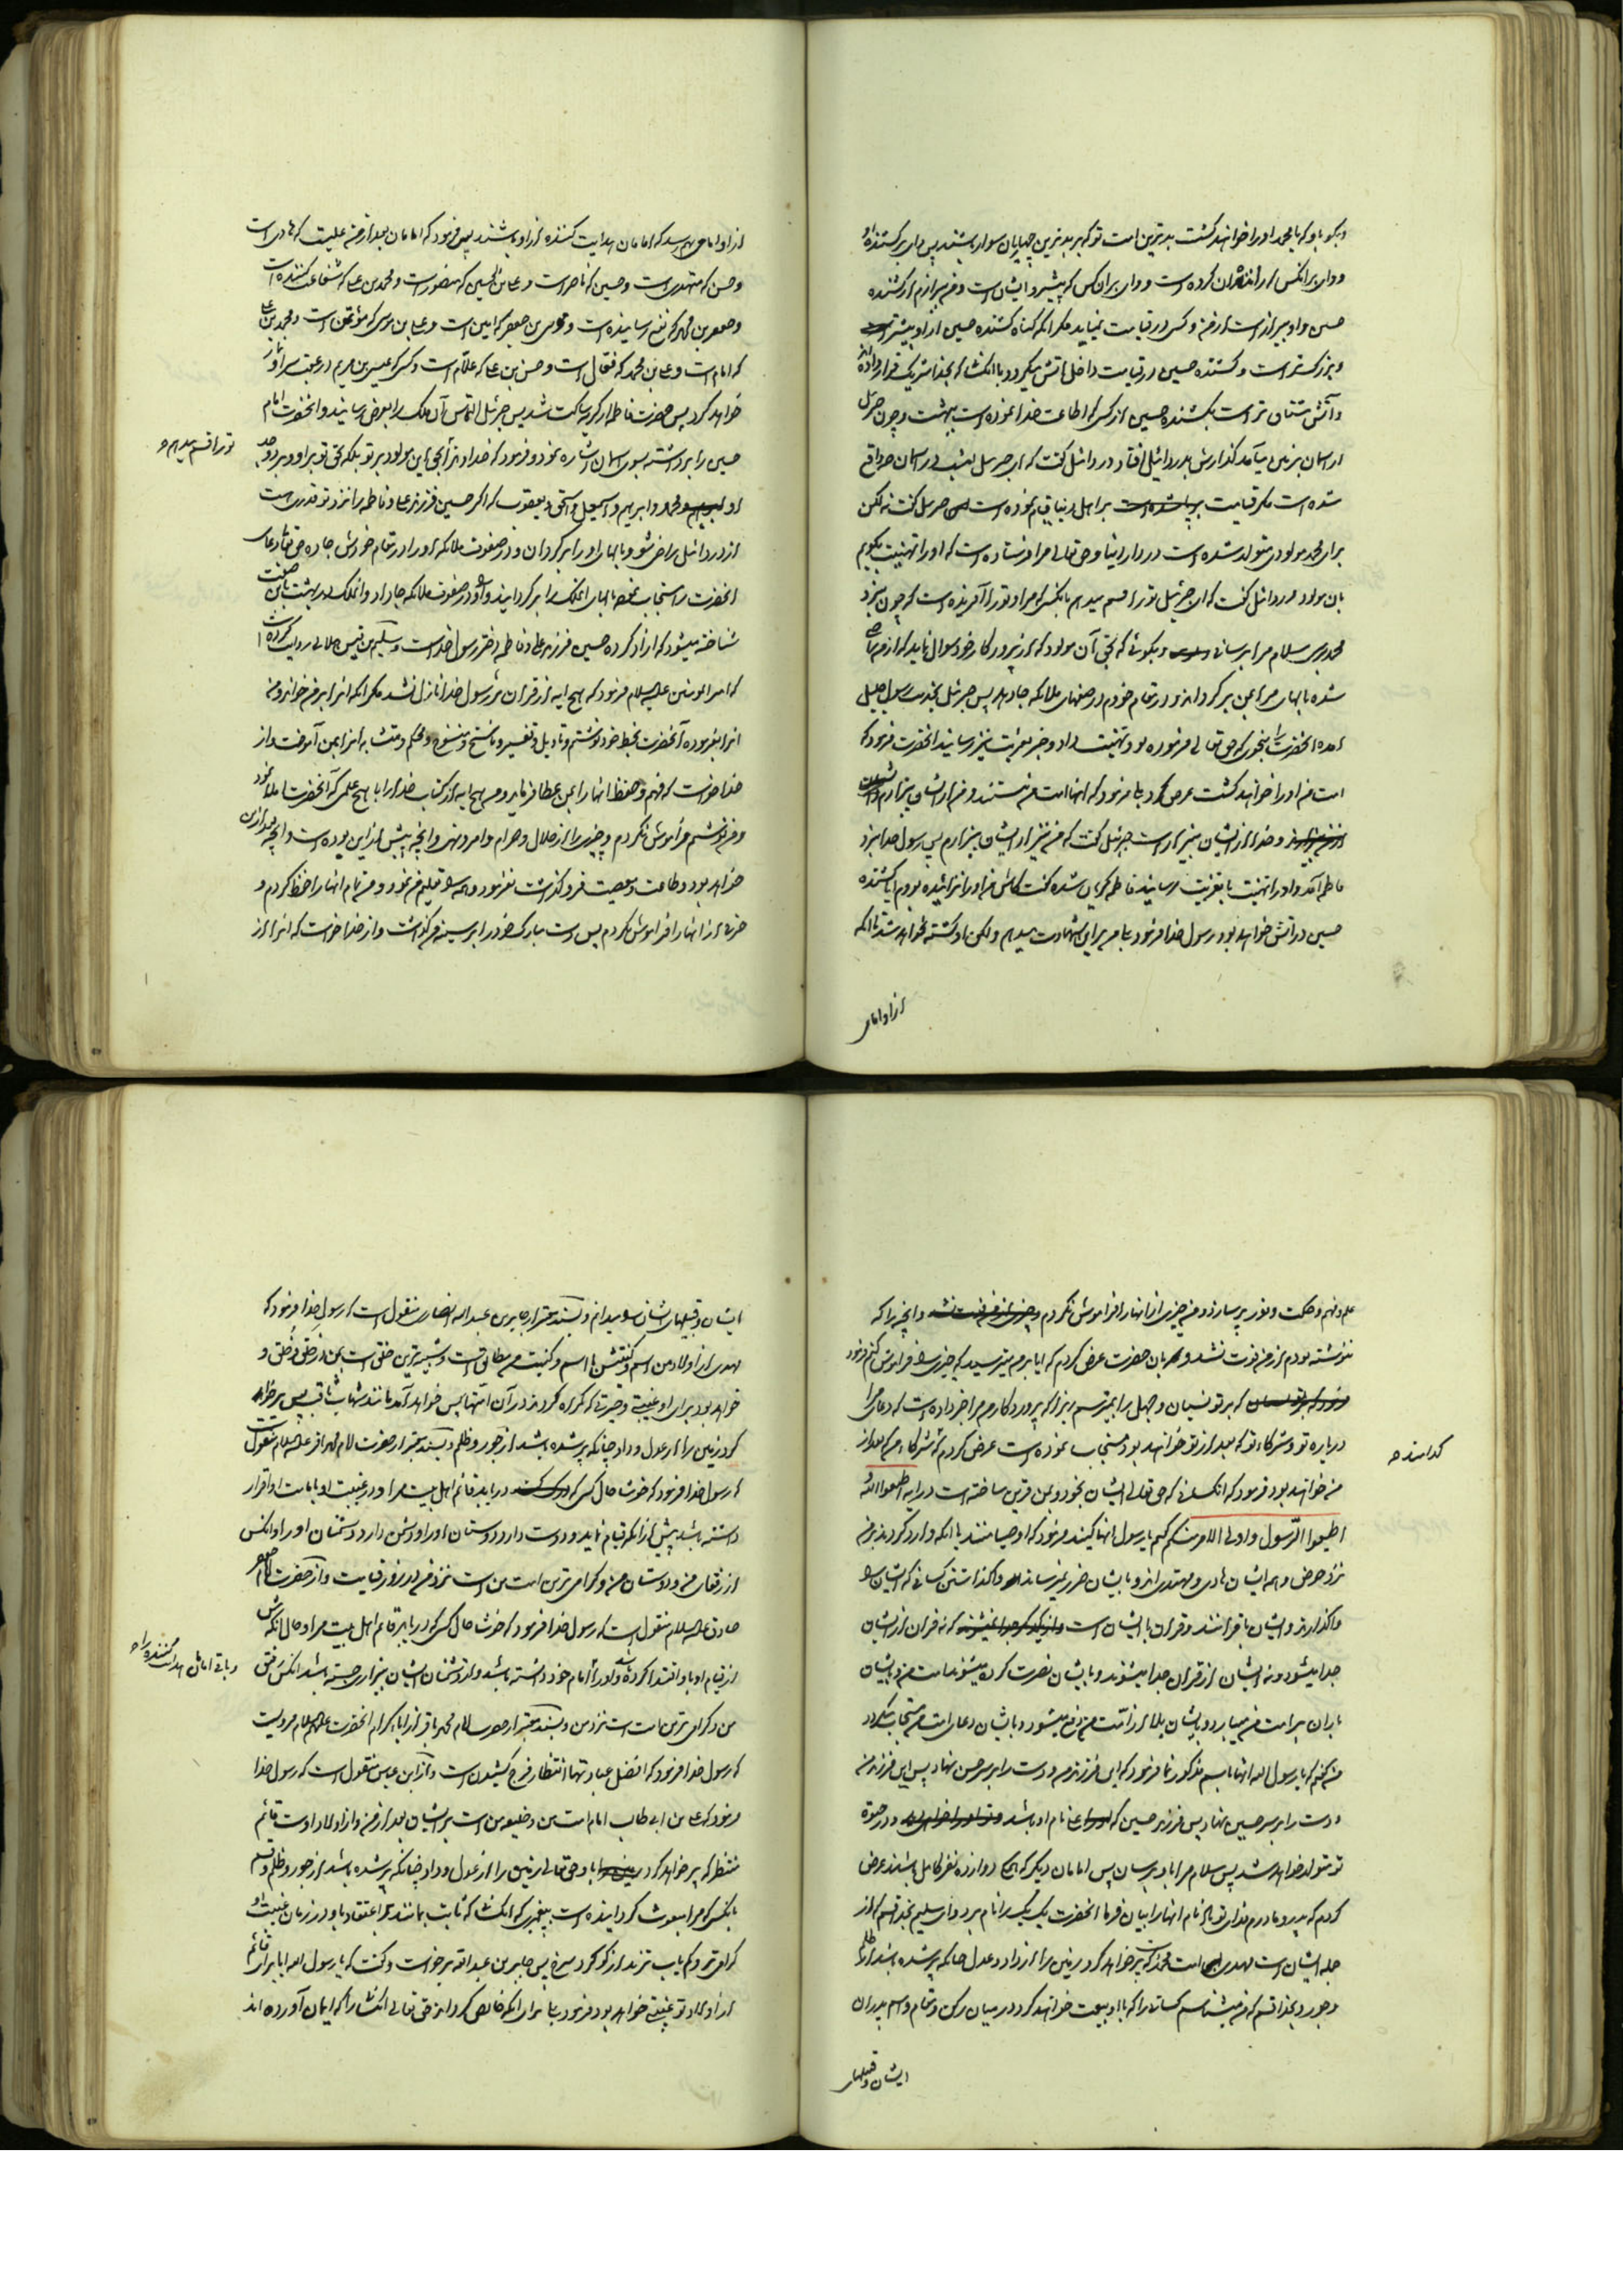 و بگو باو که یا محمد او را خواهند کشت بدترین امت تو که بر بدترین چهارپایان سوار باشند پس وای بر کشنده او
و وای بر انکس که راننده ایشان کرده است و وای بر ان کس که پیشرو ایشان است و من بیزارم از کشنده
حسین و او بیزار است از من و کسی در قیامت نمیاید مکر انکه کناه کشنده حسین از او بیشتر است
و بزرکتر است و کشنده حسین در قیامت داخل آتش میکردد با انکسانی که بخدا شریک قرار داده اند
و آتش مشتاق تر است بکشنده حسین از کسی که اطاعت خدا نموده است ببهشت و چون جبرئیل
از اسمان بزمین میآمد کذارش بدردائیل افتاد دردائیل کفت که ای جبرئیل امشب در اسمان چه واقع
شده است مکر قیامت بر اهل دنیا قیام نموده است جبرئیل کفت نه لکن
برای محمد مولودی متولد شده است در دار دنیا و حق تعالی مرا فرستاده است که او را تهنیت بکویم
بان مولود دردائیل کفت که ای جبرئیل تو را قسم میدهم بانکسی که مرا و تو را آفریده است که چون بنزد
محمد برسی سلام مرا برسانی و بکوئی که بحق آن مولود که از پروردکار خود سوال نماید که از من راضی
شده بالهای مرا بمن بر کرداند و در مقام خودم در صفهای ملائکه جا دهد پس جبرئیل بخدمت رسول جلیل
آمده انحضرت را بنحوی که حق تعالی فرموده بود تهنیت داد و خبر تعزیت نیز رسانید انحضرت فرمود که
امت من او را خواهند کشت عرض کرد بلی فرمود که انها امت من نیستند و من از ایشان بیزارم
و خدا از ایشان بیزار است جبرئیل کفت که من نیز از ایشان بیزارم پس رسول خدا بنزد
فاطمه آمد و او را تهنیت با تعزیت رسانید فاطمه کریان شده کفت کاش من او را نزائیده بودم ایا کشنده
حسین در اتش خواهد بود رسول خدا فرمود بلی من برای شهادت میدهم و لکن او کشته نخواهد شد تا انکه
از او امامی
از او امامی بهم رسد که امامان هدایت کننده از او باشند پس فرمود که امامان بعد از من علیست که هادی است
و حسن که مهتدی است و حسین که ناصر است و علی بن الحسین که منصور است و محمد بن علی که شفاعت کننده است
و جعفر بن محمد که نفع رساننده است و موسی بن جعفر که امین است و علی بن موسی که مؤتمن است و محمد بن علی
که امام است و علی بن محمد که فعّال است و حسن بن علی که علّام است و کسی که عیسی بن مریم در عقب سر او نماز
خواهد کرد پس حضرت فاطمه از کریه ساکت شد پس جبرئیل التماس آن ملک را بعرض رسانید و انحضرت امام
حسین را برداشته بسوی اسمان اشاره نمود و فرمود که خداوندا بحق این مولود بر تو بلکه بحق تو بر او و بر جد
تو را قسم میدهم
او محمد و ابرهیم و اسمعیل و اسحق و یعقوب که اکر حسین فرزند علی و فاطمه را نزد تو قدری هست
از دردائیل راضی شو و بالهای او را بر کردان و در صفوف ملائکه او را در مقام خودش جا ده حق تعالی دعای
انحضرت را مستجاب نموده بالهای انملک را بر کردانید و او را در صفوف ملائکه جا داد و انملک در بهشت باین صفت
شناخته میشود که ازاد کرده حسین فرزند علی و فاطمه دختر رسول خداست و سلیم بن قیس هلالی روایت کرده است
که امیرالمومنین علیه السلام فرمود که هیچ ایه از قران بر رسول خدا نازل نشد مکر انکه انرا بر من خواند و من
انرا بفرموده آنحضرت بخط خود نوشتم و تاویل و تفسیر و ناسخ و منسوخ و محکم و متشابه انرا بمن آموخت و از
خدا خواست که فهم و حفظ انها را بمن عطا فرماید و من هیچ ایه از کتاب خدا را با هیچ علمی که آنحضرت املا نمود
و من نوشتم فراموش نکردم و چیزی را از حلال و حرام و امر و نهی و انچه پیش از این بوده است و انچه بعد از این
خواهد بود و طاعت و معصیت فرو کذاشت نفرمود و همه را تعلیم من نمود و من تمام انها را حفظ کردم و
حرفی از انها را فراموش نکردم پس دست مبارک خود را بر سینه من کذاشت و از خدا خواست که انرا از
علم و فهم و حکمت و نور پر سازد و من چیزی از انها را فراموش نکردم و انچه را که
ننوشته بودم از من فوت نشد و بان حضرت عرض کردم که ایا بر من میترسید که چیزی را فراموش کنم فرمود
که بر تو نسیان و جهل را نمیترسم زیرا که پروردکارم مرا خبر داده است که دعای مرا
درباره تو و شرکاء تو که بعد از تو خواهند بود مستجاب نموده است عرض کردم که شرکاء من که بعد از
کدامند
من خواهند بود فرمود که انکسانی که حق تعالی ایشان را بخود و بمن قرین ساخته است در ایه اطیعوا الله
و اطیعوا الرّسول و اولی الامر منکم کفتم یا رسول الله انها کیند فرمود که اوصیا منند تا انکه وارد کردند بر من
نزد حوض و همه ایشان هادی و مهتدی اند و بایشان ضرر نمیرساند واکذاشتن کسانی که ایشان را
واکذارند و ایشان با قرانند و قران با ایشان است که نه قران از ایشان
جدا میشود و نه ایشان از قران جدا میشوند و بایشان نصرت کرده میشوند امت من و بایشان
باران بر امت من میبارد و بایشان بلا از امّت من دفع میشود و بایشان دعای امت من مستجاب میکردد
من کفتم که یا رسول الله انها را باسم مذکور نما فرمود که این فرزند من و دست را بر سر حسن نهاد پس این فرزند من
و دست را بر سر حسین نهاد پس فرزند حسین که علی نام او باشد و در حیوة
تو متولد خواهد شد پس سلام مرا باو برسان پس امامان دیکر که همه دوازده نفر کامل باشند عرض
کردم که پدر و مادرم فدای تو باد نام انها را بیان فرما انحضرت یک یک را نام برد و ای سلیم بخدا قسم که از
جمله ایشان است مهدی امت محمد که پر خواهد کرد زمین را از داد و عدل چنانکه پر شده باشد از ظلم
و جور و بخدا قسم که من میشناسم کسانی را که با او بیعت خواهند کرد در میان رکن و مقام و اسم پدران
ایشان و قبیلهای
ایشان و قبیلهای ایشان را میدانم و بسند معتبر از جابر بن عبدالله انصاری منقول است که رسول خدا فرمود که
مهدی از اولاد من اسم و کنیتش با اسم و کنیت من مطابق است و شبیه ترین خلق است بمن در خَلق و خُلق و
خواهد بود برای او غیبتی و حیرتی که کمراه کردند در آن امّتها پس خواهد آمد مانند شهاب ثاقب پس پر خواهد
کرد زمین را از عدل و داد چنانکه پر شده باشد از جور و ظلم و بسند معتبر از حضرت امام محمد باقر علیه السلام منقول است
که رسول خدا فرمود که خوشا حال کسی که دریابد قائم اهل بیت مرا و در غیبت او بامامت او اقرار
داشته باشد پیش از انکه قیام نماید و دوست دارد دوستان او را و دشمن دارد دشمنان او را و انکس
از رفقای من و دوستان من و کرامی ترین امت من است نزد من در روز قیامت و از حضرت امام جعفر
صادق علیه السلام منقول است که رسول خدا فرمود که خوشا حال کسی که دریابد قائم اهل بیت مرا و حال انکه پیش
از قیام او باو اقتدا کرده باشد و او را امام خود دانسته باشد و از دشمنان ایشان بیزاری جسته باشد انکس رفیق
و باقی امامان هدایت کننده را
من و کرامی ترین امت است نزد من و بسند معتبر از حضرت امام محمد باقر از اباء کرام انحضرت علیهم السلام مرویست
که رسول خدا فرمود که افضل عبادتها انتظار فرج کشیدن است و از ابن عباس منقول است که رسول خدا
فرمود که علی بن ابی طالب امام امت من و خلیفه من است بر ایشان بعد از من و از اولاد اوست قائم
منتظر که پر خواهد کرد باو حق تعالی زمین را از عدل و داد چنانکه پر شده باشد از جور و ظلم و قسم
بانکسی که مرا مبعوث کردانیده است به پیغمبری که انکسانی که ثابت بمانند بر اعتقاد باو در زمان غیبت او
کرامی تر و کم یاب ترند از کوکرد سرخ پس جابر بن عبدالله برخواست و کفت که یا رسول الله ایا برای قائم
از اولاد تو غیبتی خواهد بود فرمود بلی برای انکه خالص کرداند حق تعالی انکسان را که ایمان آورده اند